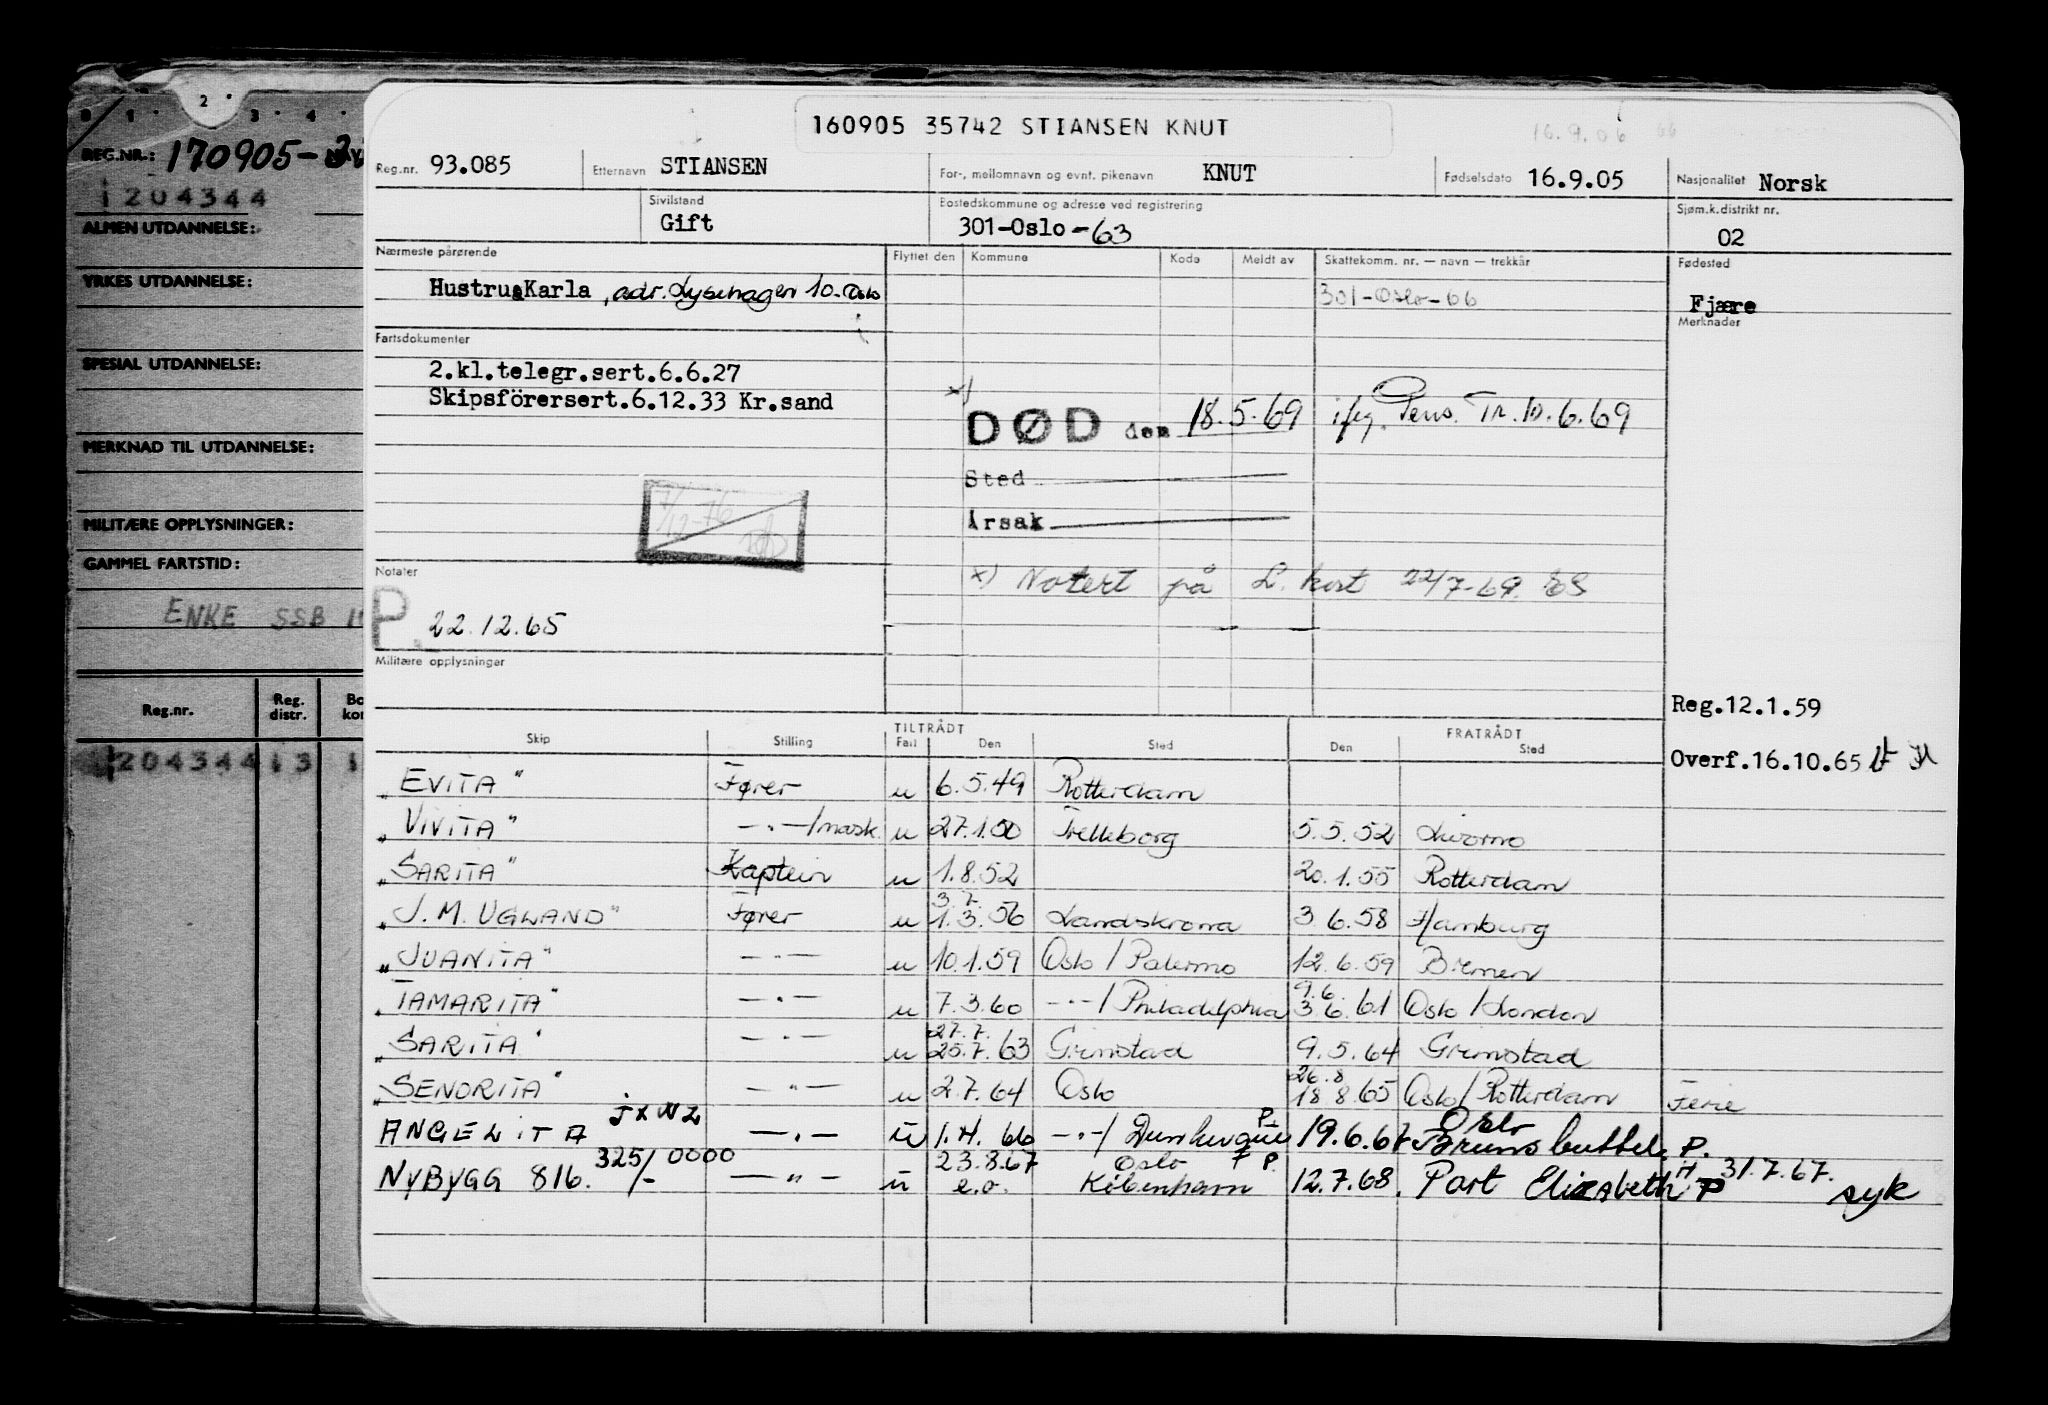 2
3 4
REG.NR.: 170905-
1204344
ALMEN UTDANNELSE:
YRKES UTDANNELSE:
SPESIAL UTDANNELSE:
MERKNAD TIL UTDANNELSE:
MILITÆRE OPPLYSNINGER:
GAMMEL FARTSTID:
ENKE SSB
Reg.nr. Reg. distr.
204344 13 1
160905 35742 STIANSEN KNUT
16.9.06 66
Reg.nr. 93.085 Etternavn STIANSEN For-, mellomnavn og evnt. pikenavn KNUT Fødselsdato 16.9.05 Nasjonalitet Norsk
Sivilstand Gift Bostedskommune og adresse ved registrering 301-Oslo-63 Sjøm.k.distrikt nr. 02
Nærmeste pårørende Flyttet den Kommune Kode Meldt av Skattekomm. nr. — navn — trekkår Fødested
Hustru Karla, adr. Lysehagen 10-Oslo 301-Oslo-66 Fjære
Fartsdokumenter Merknader
2.kl.telegr.sert.6.6.27
Skipsförersert.6.12.33 Kr.sand
x) DØD den 18.5.69 iflg. Pens. Tr. 10.6.69
Sted
Årsak
7/12-76
x) Notert på L. kort 22/7-69.
Notater
P. 22.12.65
Militære opplysninger
Reg.12.1.59
Overf.16.10.65
TILTRÅDT FRATRÅDT
Skip Stilling Fart Den Sted Den Sted
"EVITA" Fører u 6.5.49 Rotterdam
"VIVITA" —"—/mask. u 27.1.50 Trelleborg 5.5.52 Livorno
"SARITA" Kaptein u 1.8.52 20.1.55 Rotterdam
3.7.
"J.M. UGLAND" Fører u 1.3.56 Landskrona 3.6.58 Hamburg
"JUANITA" —"— u 10.1.59 Oslo/Palermo 12.6.59 Bremen
9.6.
"TAMARITA" —"— u 7.3.60 —"—/Philadelphia 3.6.61 Oslo/London
27.7.
"SARITA" —"— u 25.7.63 Grimstad 9.5.64 Grimstad
26.8
"SENORITA" —"— u 2.7.64 Oslo 18.8.65 Oslo/Rotterdam Ferie
JXWZ P. Oslo
ANGELITA —"— u 1.4.66 —"—/Dunkerque 19.6.67 Brunsbuttel. P.
325/- 0000 23.8.67 Oslo P. 31.7.67.
NYBYGG 816. —"— u e.o. Köbenhavn 12.7.68. Port Elizabeth P syk